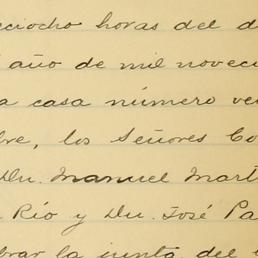 eciocho horas del d
año de mil noveci
a casa número ve
re, los Señores Co
Dn. Manuel Mart
Río y Dn. José Pa
brar la junta del